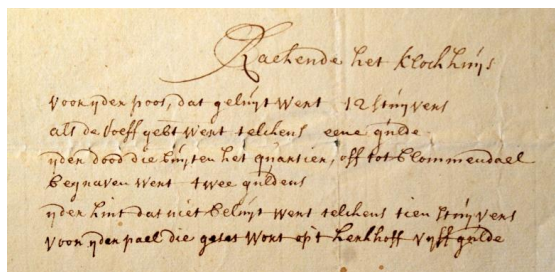 Raekende het klockhuijs
voor yder poos, dat geluijt wert 12 stuijvers
als de boeff gebt wert telckens eene gulde
yder dood die buijten het quartier, off tot blommendael
begraven wert twee guldens
yder kint dat niet beluijt wert telckens tien stuijvers
voor yder pael die geset wort op't kerkhoff vyff gulde